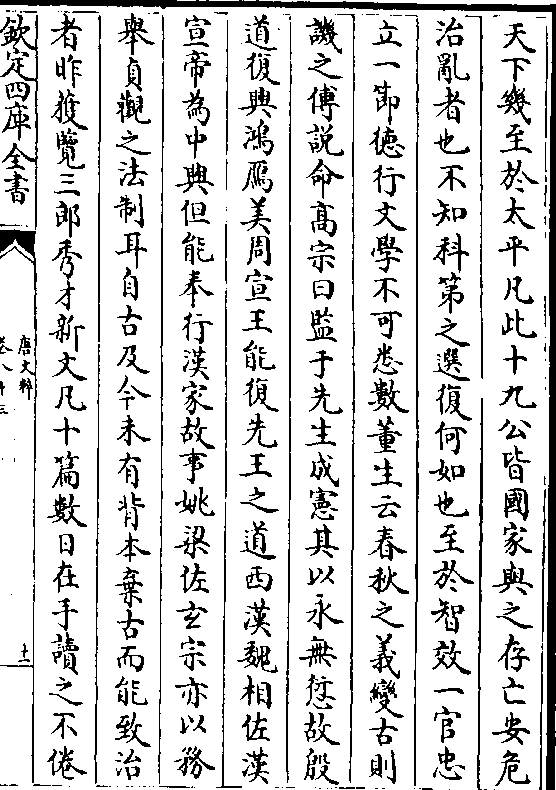 天下幾至於太平凡此十九公皆國家與之存亡安危
治亂者也不知科第之選復何如也至於智效一官忠
立一節德行文學不可悉數董生云春秋之義變古則
譏之傅說命高宗曰監于先生成憲其以永無愆故殷
道復興鴻鴈美周宣王能復先王之道西漢魏相佐漢
宣帝為中興但能奉行漢家故事姚梁佐玄宗亦以務
舉貞觀之法制耳自古及今未有背本棄古而能致治
者昨獲覽三郎秀才新文凡十篇數日在手讀之不倦
欽定四庫全書
唐文粹
卷八十三
十二